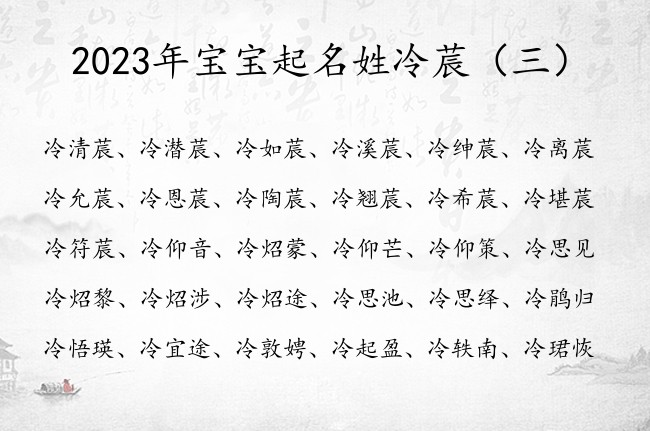 2023年宝宝起名姓冷莀（三）
冷清莀、冷潜莀、冷如莀、冷溪莀、冷绅莀、冷离莀
冷允莀、冷恩莀、冷陶莀、冷翘莀、冷希莀、冷堪莀
冷符莀、冷仰音、冷炤蒙、冷仰芒、冷仰策、冷思见
冷炤黎、冷炤涉、冷炤途、冷思池、冷思绎、冷鹃归
冷悟瑛、冷宜途、冷敦娉、冷起盈、冷轶南、冷珺恢